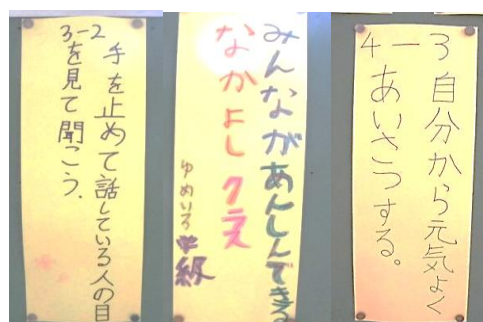 3-2
手を止めて話している人の目
を見て聞こう.
みんながあんしんできる
なかよしクラス
ゆめいろ学級
4-3 自分から元気よく
あいさつする。